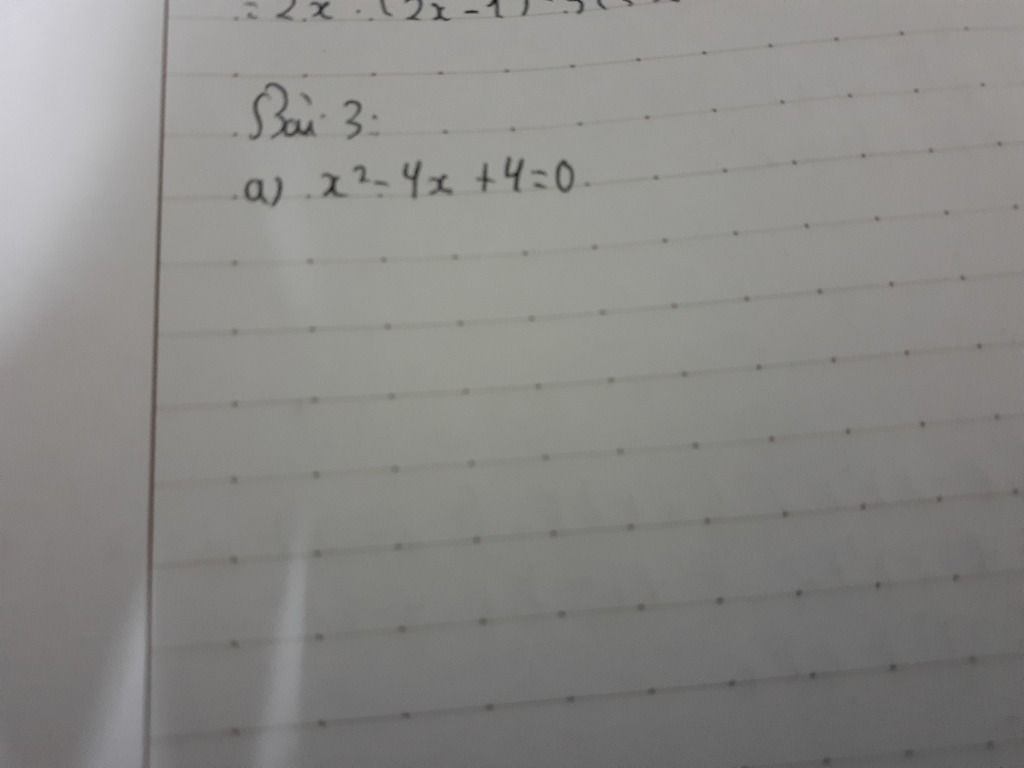 = 2x · (2x - 1)
Bài 3:
a) x² - 4x + 4 = 0